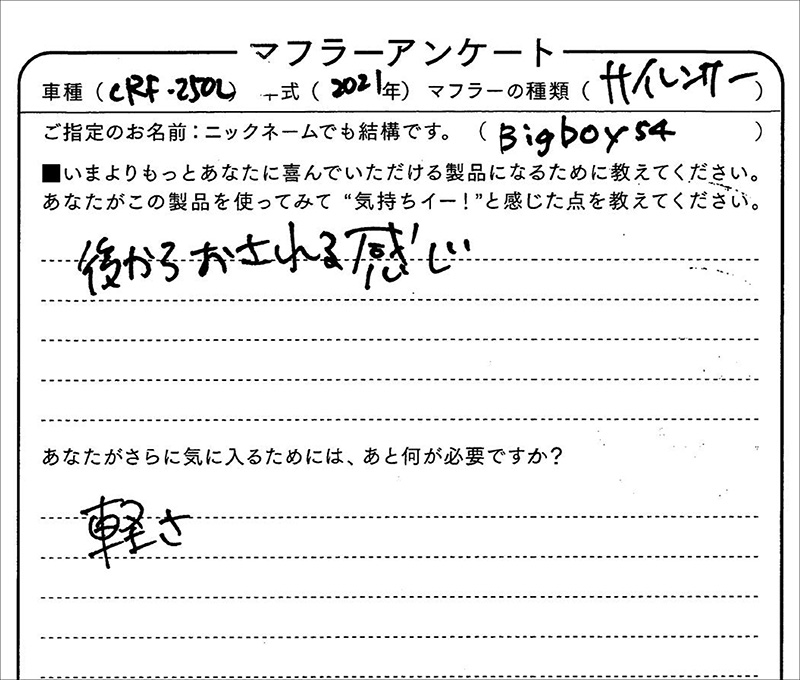 マフラーアンケート
車種（CRF-250L）年式（2021年）マフラーの種類（サイレンサー）
ご指定のお名前：ニックネームでも結構です。（Bigboy54）
■いまよりもっとあなたに喜んでいただける製品になるために教えてください。
あなたがこの製品を使ってみて“気持ちイー！”と感じた点を教えてください。
後からおされる感じ
あなたがさらに気に入るためには、あと何が必要ですか？
軽さ